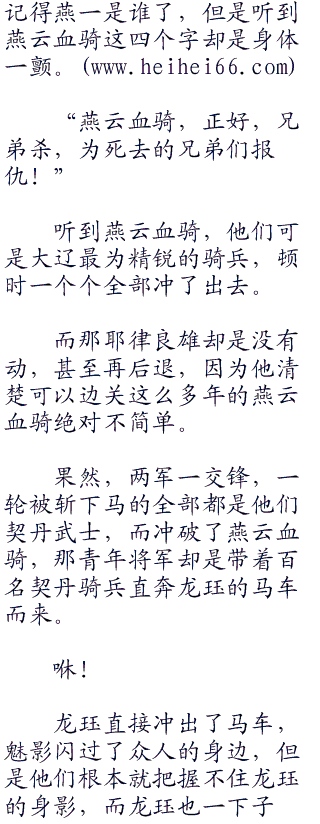 记得燕一是谁了，但是听到
燕云血骑这四个字却是身体
一颤。(www.heihei66.com)
“燕云血骑，正好，兄
弟杀，为死去的兄弟们报
仇！”
听到燕云血骑，他们可
是大辽最为精锐的骑兵，顿
时一个个全部冲了出去。
而那耶律良雄却是没有
动，甚至再后退，因为他清
楚可以边关这么多年的燕云
血骑绝对不简单。
果然，两军一交锋，一
轮被斩下马的全部都是他们
契丹武士，而冲破了燕云血
骑，那青年将军却是带着百
名契丹骑兵直奔龙珏的马车
而来。
咻！
龙珏直接冲出了马车，
魅影闪过了众人的身边，但
是他们根本就把握不住龙珏
的身影，而龙珏也一下子